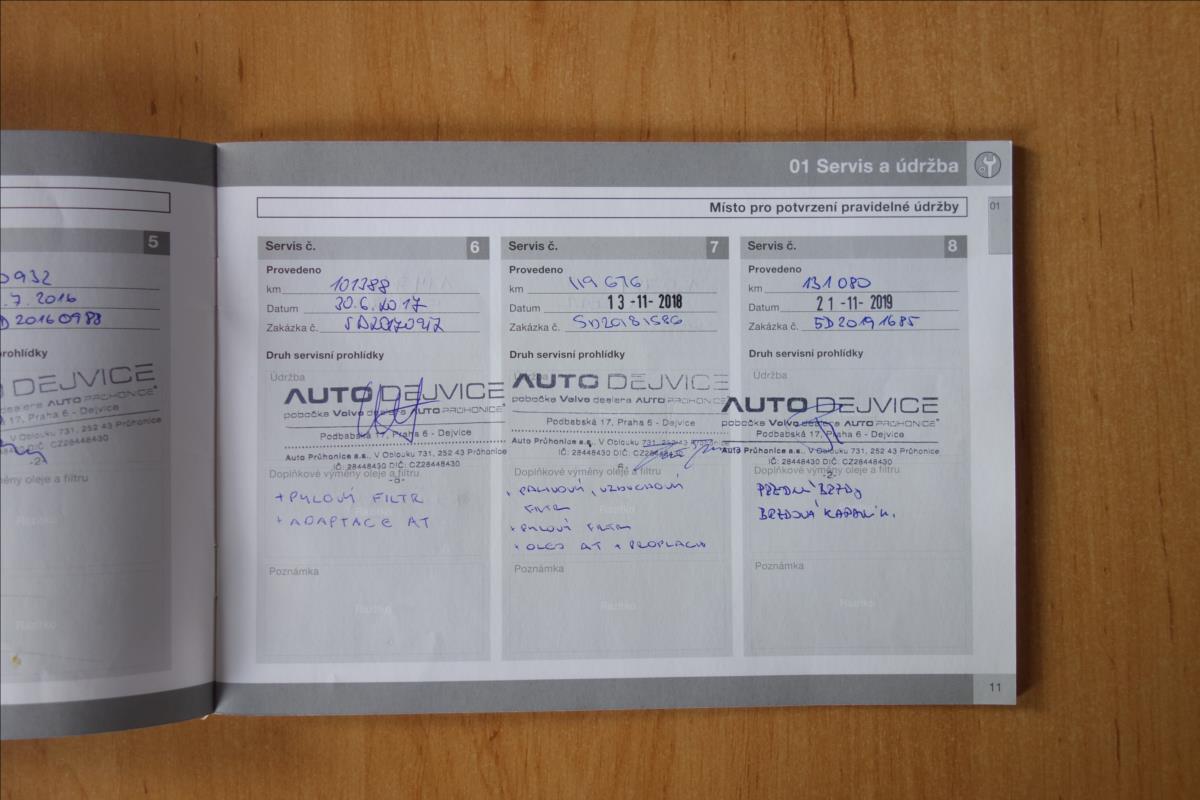 5
0932
.7. 2016
D 20160983
prohlídky
O DEJVICE
dealera AUTO PRŮHONICE
17, Praha 6 - Dejvice
V Oblouku 731, 252 43 Průhonice
DIČ: CZ28448430
-2-
měny oleje a filtru
Razítko
Razítko
01 Servis a údržba
Místo pro potvrzení pravidelné údržby
01
Servis č. 6
Provedeno
km 101388
Datum 30.6.2017
Zakázka č. SD20170917
Druh servisní prohlídky
Údržba
AUTO DEJVICE
pobočka Volvo dealera AUTO PRŮHONICE
Podbabská 17, Praha 6 - Dejvice
Auto Průhonice a.s., V Oblouku 731, 252 43 Průhonice
IČ: 28448430 DIČ: CZ28448430
Doplňkové výměny oleje a filtru
+ PYLOVÝ FILTR
+ ADAPTACE AT
Poznámka
Razítko
Servis č. 7
Provedeno
km 119 676
Datum 13 -11- 2018
Zakázka č. SD20181586
Druh servisní prohlídky
Údržba
AUTO DEJVICE
pobočka Volvo dealera AUTO PRŮHONICE
Podbabská 17, Praha 6 - Dejvice
Auto Průhonice a.s., V Oblouku 731, 252 43 Průhonice
IČ: 28448430 DIČ: CZ28448430
Doplňkové výměny oleje a filtru
+ PALIVOVÝ, VZDUCHOVÝ
FILTR
+ PYLOVÝ FILTR
+ OLEJ AT + PROPLACH
Poznámka
Razítko
Servis č. 8
Provedeno
km 131 080
Datum 21 -11- 2019
Zakázka č. SD20191685
Druh servisní prohlídky
Údržba
AUTO DEJVICE
pobočka Volvo dealera AUTO PRŮHONICE
Podbabská 17, Praha 6 - Dejvice
Auto Průhonice a.s., V Oblouku 731, 252 43 Průhonice
IČ: 28448430 DIČ: CZ28448430
-2-
Doplňkové výměny oleje a filtru
PŘEDNÍ BRZDY
BRZDOVÁ KAPALIN.
Poznámka
Razítko
11